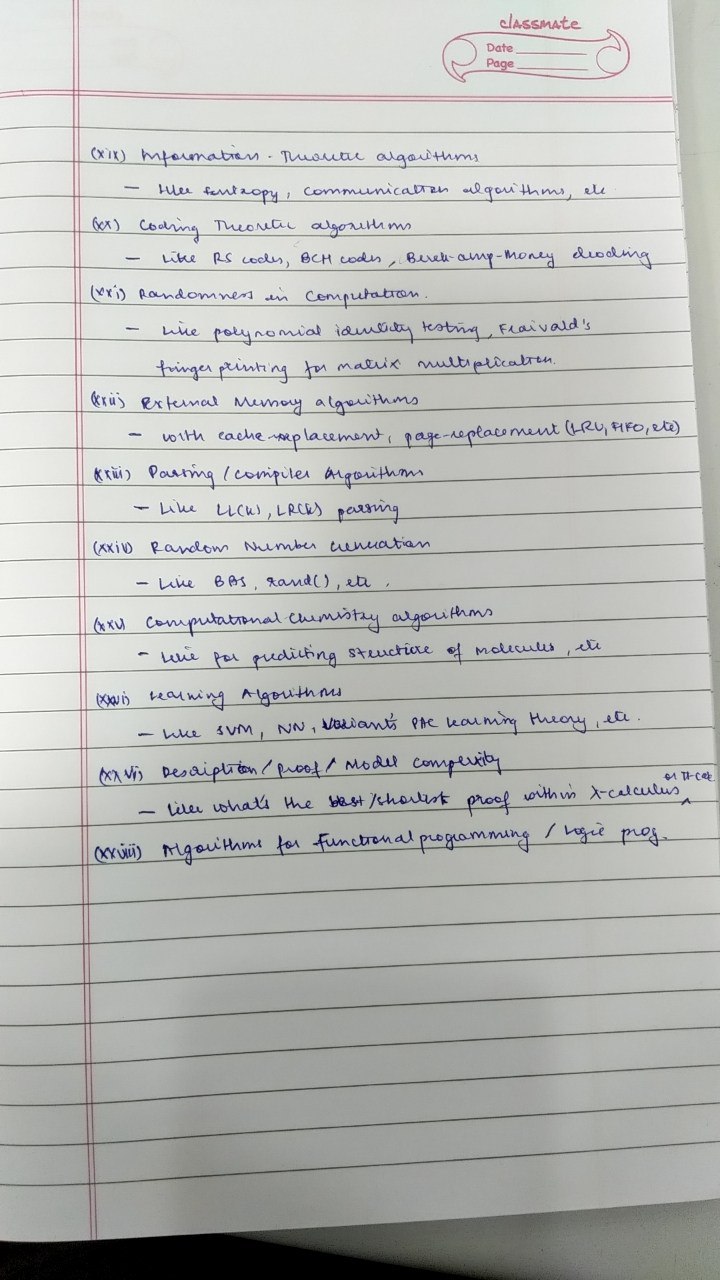 classmate
Date
Page
(xix) Information-Theoretic algorithms
— like entropy, communication algorithms, etc
(xx) Coding Theoretic algorithms
— Like RS codes, BCH codes, Berek-amp-Money decoding
(xxi) Randomness in Computation.
— like polynomial identity testing, Fraivald's
finger printing for matrix multiplication.
(xxii) External Memory algorithms
— with cache-replacement, page-replacement (LRU, FIFO, etc)
(xxiii) Parsing / compiler Algorithms
— Like LL(k), LR(k) parsing
(xxiv) Random Number Generation
— Like BBS, rand(), etc.
(xxv) Computational Chemistry algorithms
— like for predicting structure of molecules, etc
(xxvi) Learning Algorithms
— Like SVM, NN, Valiant's PAC learning theory, etc.
(xxvi) Description / Proof / Model compexity
— like what's the best/shortest proof within λ-calculus
(xxviii) Algorithms for functional programming / Logic prog.